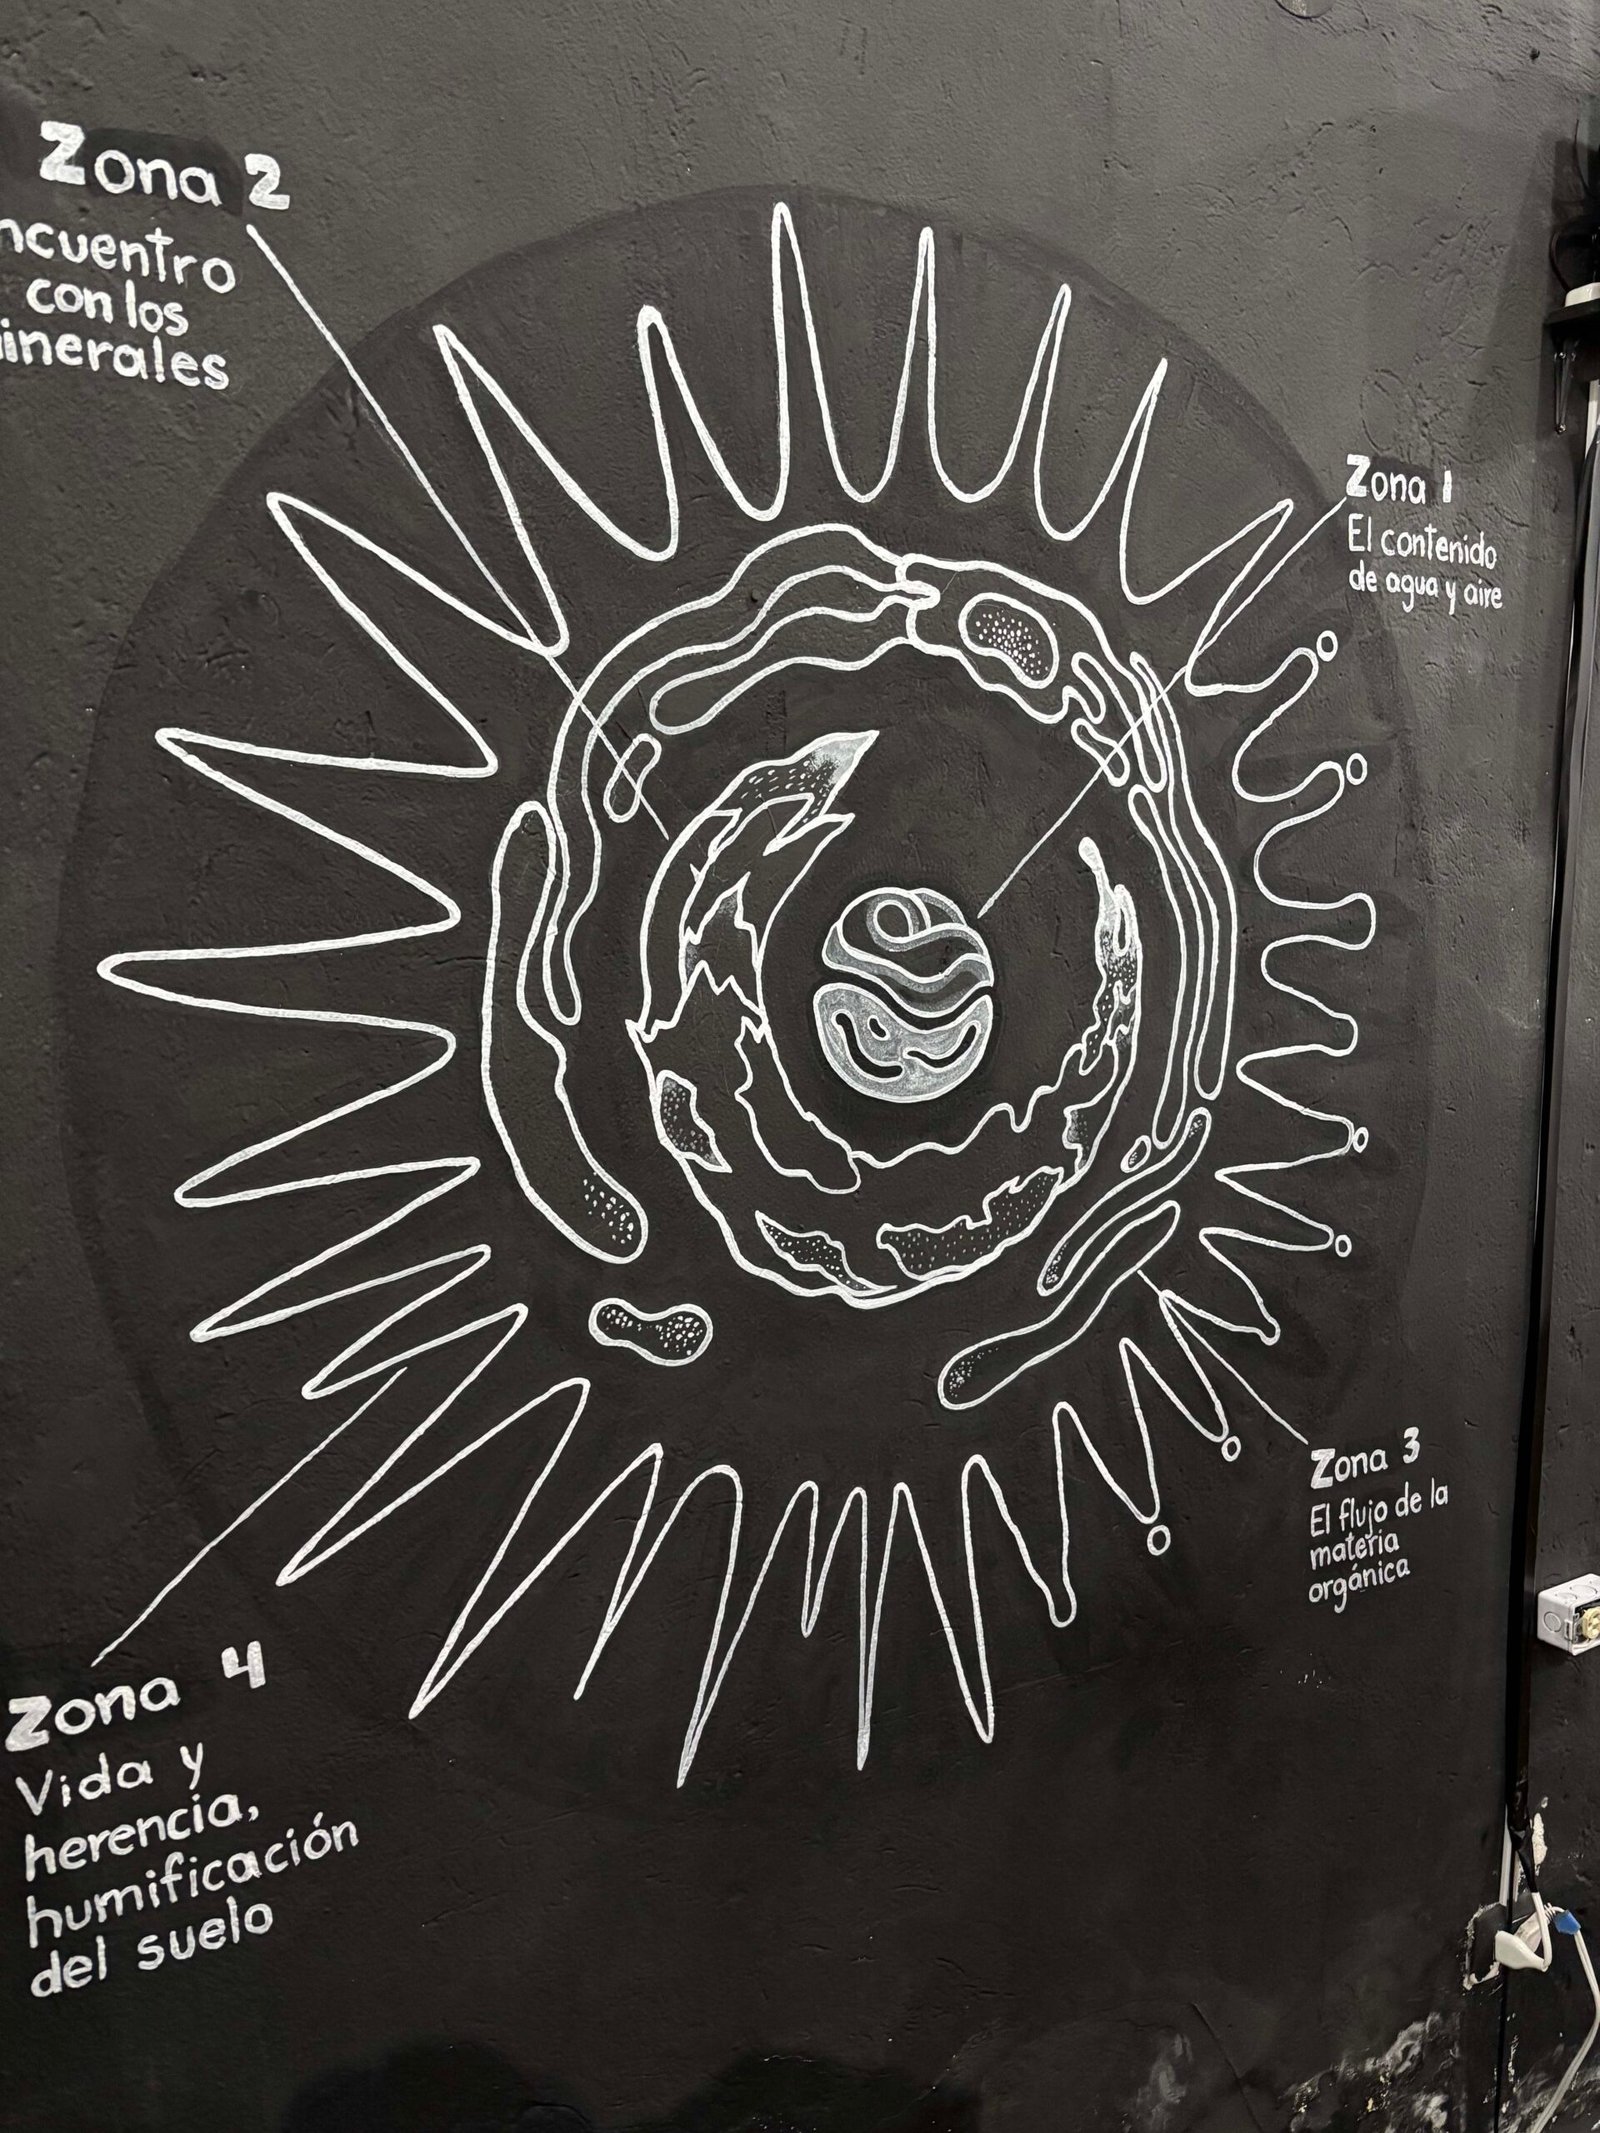 Zona 2
ncuentro
con los
inerales
Zona 1
El contenido
de agua y aire
Zona 3
El flujo de la
materia
orgánica
Zona 4
Vida y
herencia,
humificación
del suelo